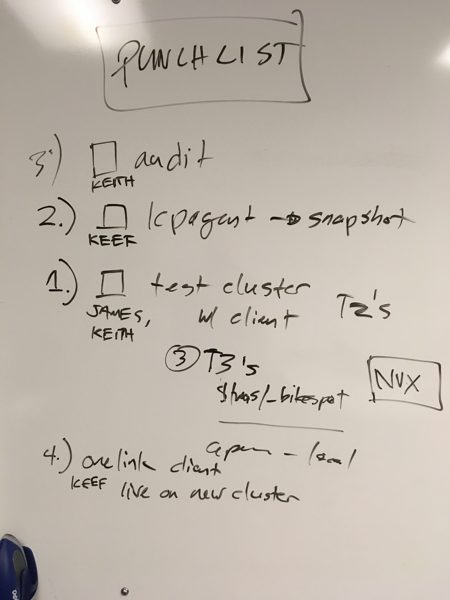 PUNCHLIST
3.) audit
KEITH
2.) lcpagent → snapshot
KEEF
1.) test cluster
JAMES, w/ client T2's
KEITH
③ T3's
NVX
4.) onelink client
KEEF live on new cluster